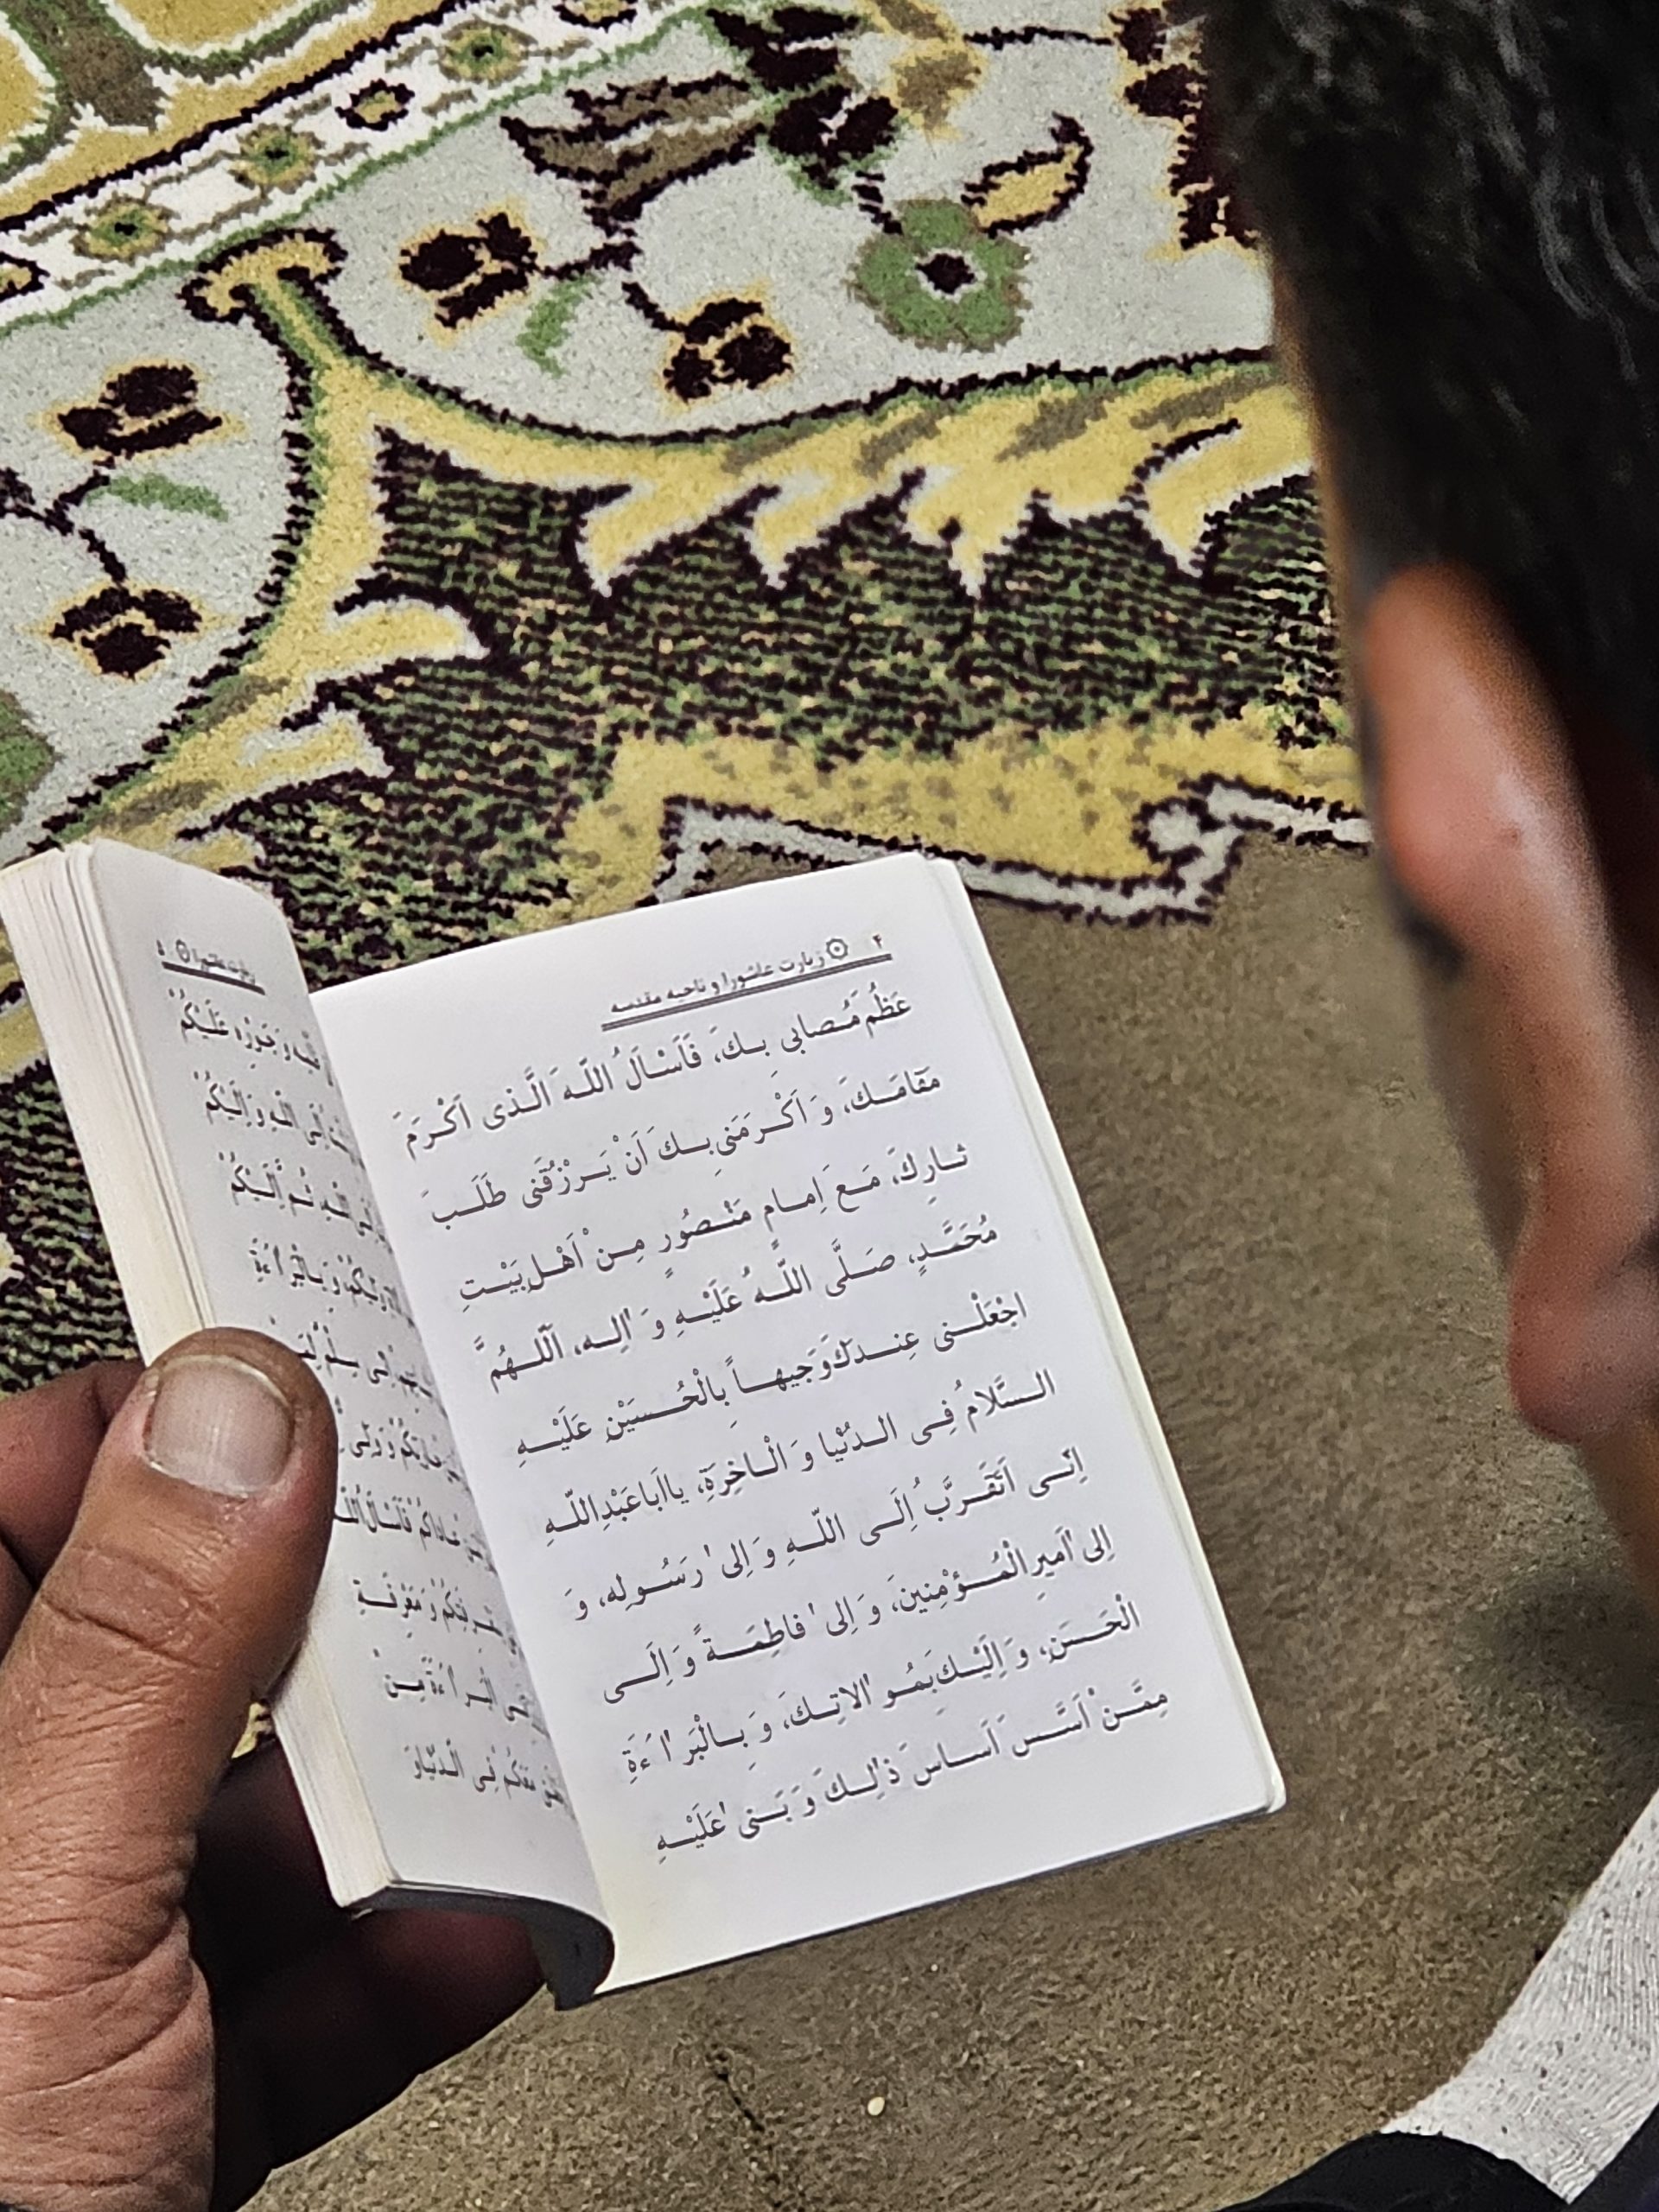 ۴ زیارت عاشورا و ناحیه مقدسه
عَظُمَ مُصابي بِكَ، فَاَسْاَلُ اللّهَ الَّذى اَكْرَمَ
مَقامَكَ، وَ اَكْرَمَنى بِكَ اَنْ يَرْزُقَنى طَلَبَ
ثارِكَ، مَعَ اِمامٍ مَنْصُورٍ مِنْ اَهْلِ بَيْتِ
مُحَمَّدٍ، صَلَّى اللّهُ عَلَيْهِ وَ الِه، اَللّهُمَّ
اجْعَلْنى عِنْدَكَ وَجيهاً بِالْحُسَيْنِ عَلَيْهِ
السَّلامُ فِى الدُنْيا وَ الْاخِرَةِ، يا اَبا عَبْدِ اللّهِ
اِنّى اَتَقَرَّبُ اِلَى اللّهِ وَ اِلى رَسُولِه، وَ
اِلى اَميرِ الْمُؤْمِنينَ، وَ اِلى فاطِمَةَ وَ اِلَى
الْحَسَنِ، وَ اِلَيْكَ بِمُوالاتِكَ، وَ بِالْبَراءَةِ
مِمَّنْ اَسَّسَ اَساسَ ذلِكَ وَ بَنى عَلَيْهِ
زیارت عاشورا ۵
وَ جَوْرِه عَلَيْكُمْ
اِلَى اللّهِ وَ اِلَيْكُمْ
ثُمَّ اِلَيْكُمْ
وَ بِالْبَراءَةِ
فَاَسْاَلُ اللّهَ
وَ مَعْرِفَةِ
الْبَراءَةَ مِنْ
مَعَكُمْ فِى الدُّنْيا وَ